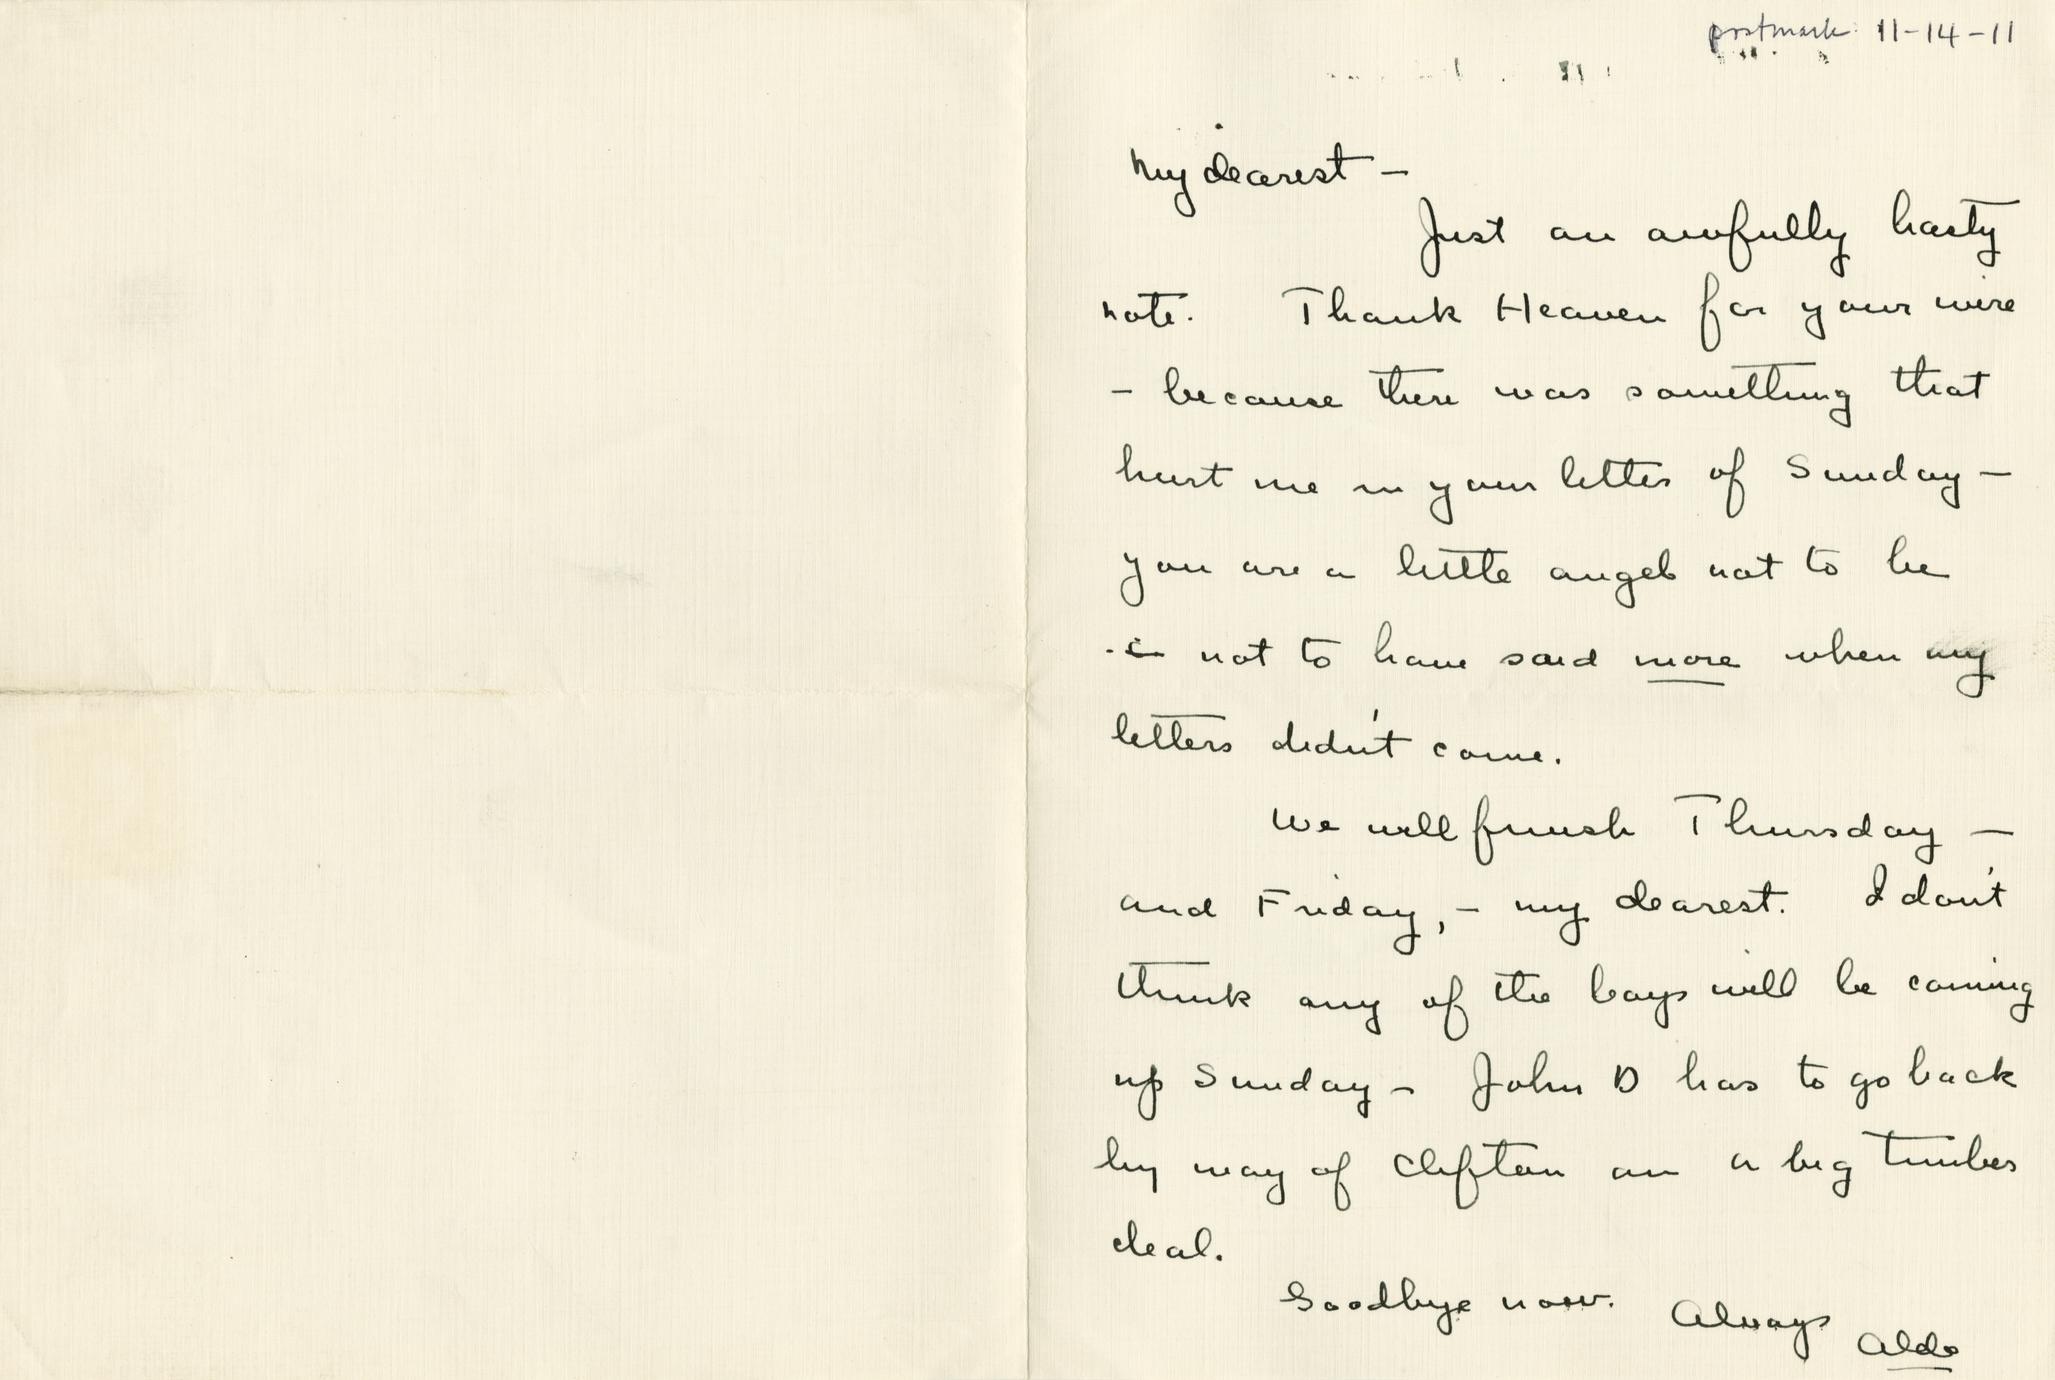 postmark 11-14-11
My dearest —
Just an awfully hasty
note. Thank Heaven for your wire
— because there was something that
hurt me in your letter of Sunday —
you are a little angel not to be
not to have said more when my
letters didn't come.
We will finish Thursday —
and Friday, — my dearest. I don't
think any of the boys will be coming
up Sunday — John D has to go back
by way of Clifton on a big timber
deal.
Goodbye now. Always
Aldo